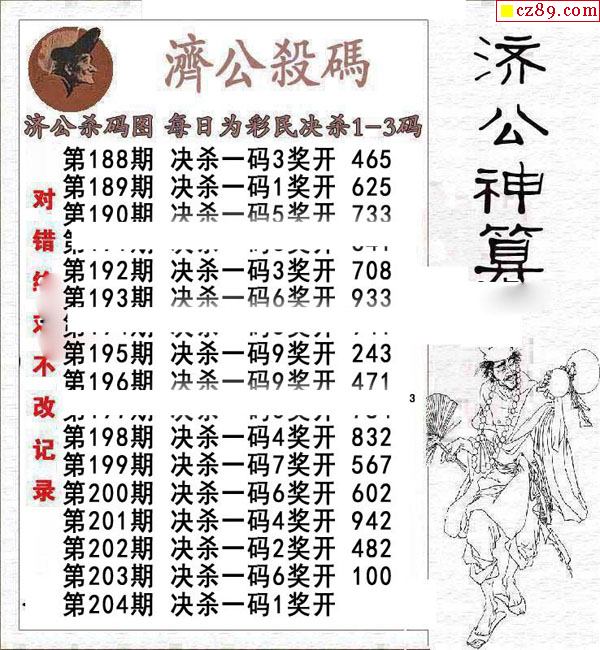 cz89.com
濟公殺碼
济公杀码图 每日为彩民决杀1-3码
第188期 决杀一码3奖开 465
第189期 决杀一码1奖开 625
第190期 决杀一码5奖开 733
第192期 决杀一码3奖开 708
第193期 决杀一码6奖开 933
第195期 决杀一码9奖开 243
第196期 决杀一码9奖开 471
3
第198期 决杀一码4奖开 832
第199期 决杀一码7奖开 567
第200期 决杀一码6奖开 602
第201期 决杀一码4奖开 942
第202期 决杀一码2奖开 482
第203期 决杀一码6奖开 100
第204期 决杀一码1奖开
对错
不改记录
济公神算